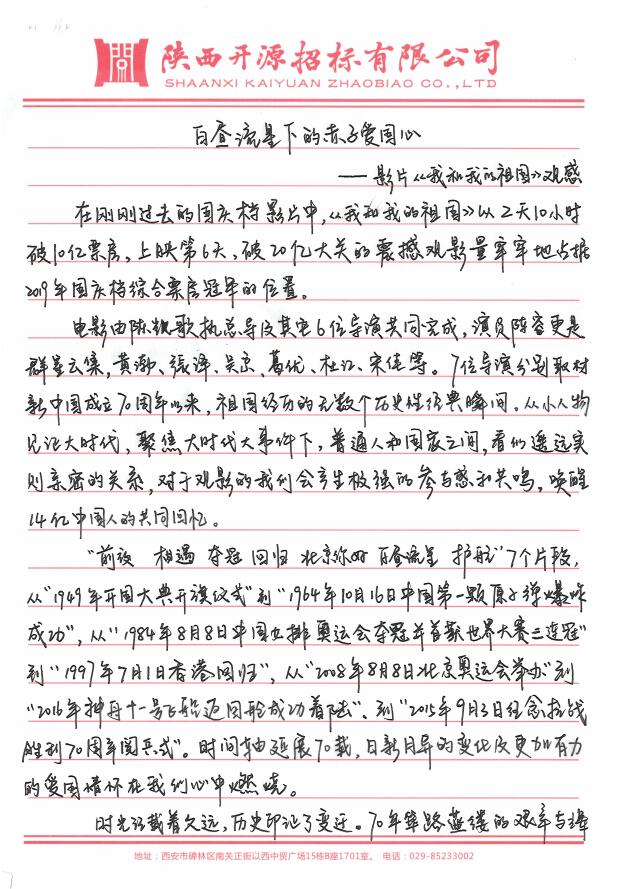 陕西开源招标有限公司
SHAANXI KAIYUAN ZHAOBIAO CO.,LTD
白昼流星下的赤子爱国心
——影片《我和我的祖国》观感
在刚刚过去的国庆档影片中，《我和我的祖国》以2天10小时
破10亿票房，上映第6天，破20亿大关的震撼观影量牢牢地占据
2019年国庆档综合票房冠军的位置。
电影由陈凯歌执总导及其它6位导演共同完成，演员阵容更是
群星云集，黄渤、张译、吴京、葛优、杜江、宋佳等。7位导演分别取材
新中国成立70周年以来，祖国经历的无数个历史性经典瞬间。从小人物
见证大时代，聚焦大时代大事件下，普通人和国家之间，看似遥远实
则亲密的关系，对于观影的我们会产生极强的参与感和共鸣，唤醒
14亿中国人的共同回忆。
“前夜 相遇 夺冠 回归 北京你好 白昼流星 护航”7个片段，
从“1949年开国大典开旗仪式”到“1964年10月16日中国第一颗原子弹爆炸
成功”，从“1984年8月8日中国女排奥运会夺冠并首获世界大赛三连冠”
到“1997年7月1日香港回归”，从“2008年8月8日北京奥运会举办”到
“2016年神舟十一号飞船返回舱成功着陆”、到“2015年9月3日纪念抗战
胜利70周年阅兵式”。时间轴延展70载，日新月异的变化及更加有力
的爱国情怀在我们心中燃烧。
时光记载着久远，历史印证了变迁。70年筚路蓝缕的艰辛与峰
地址：西安市碑林区南关正街以西中贸广场15栋B座1701室。 电话：029-85233002